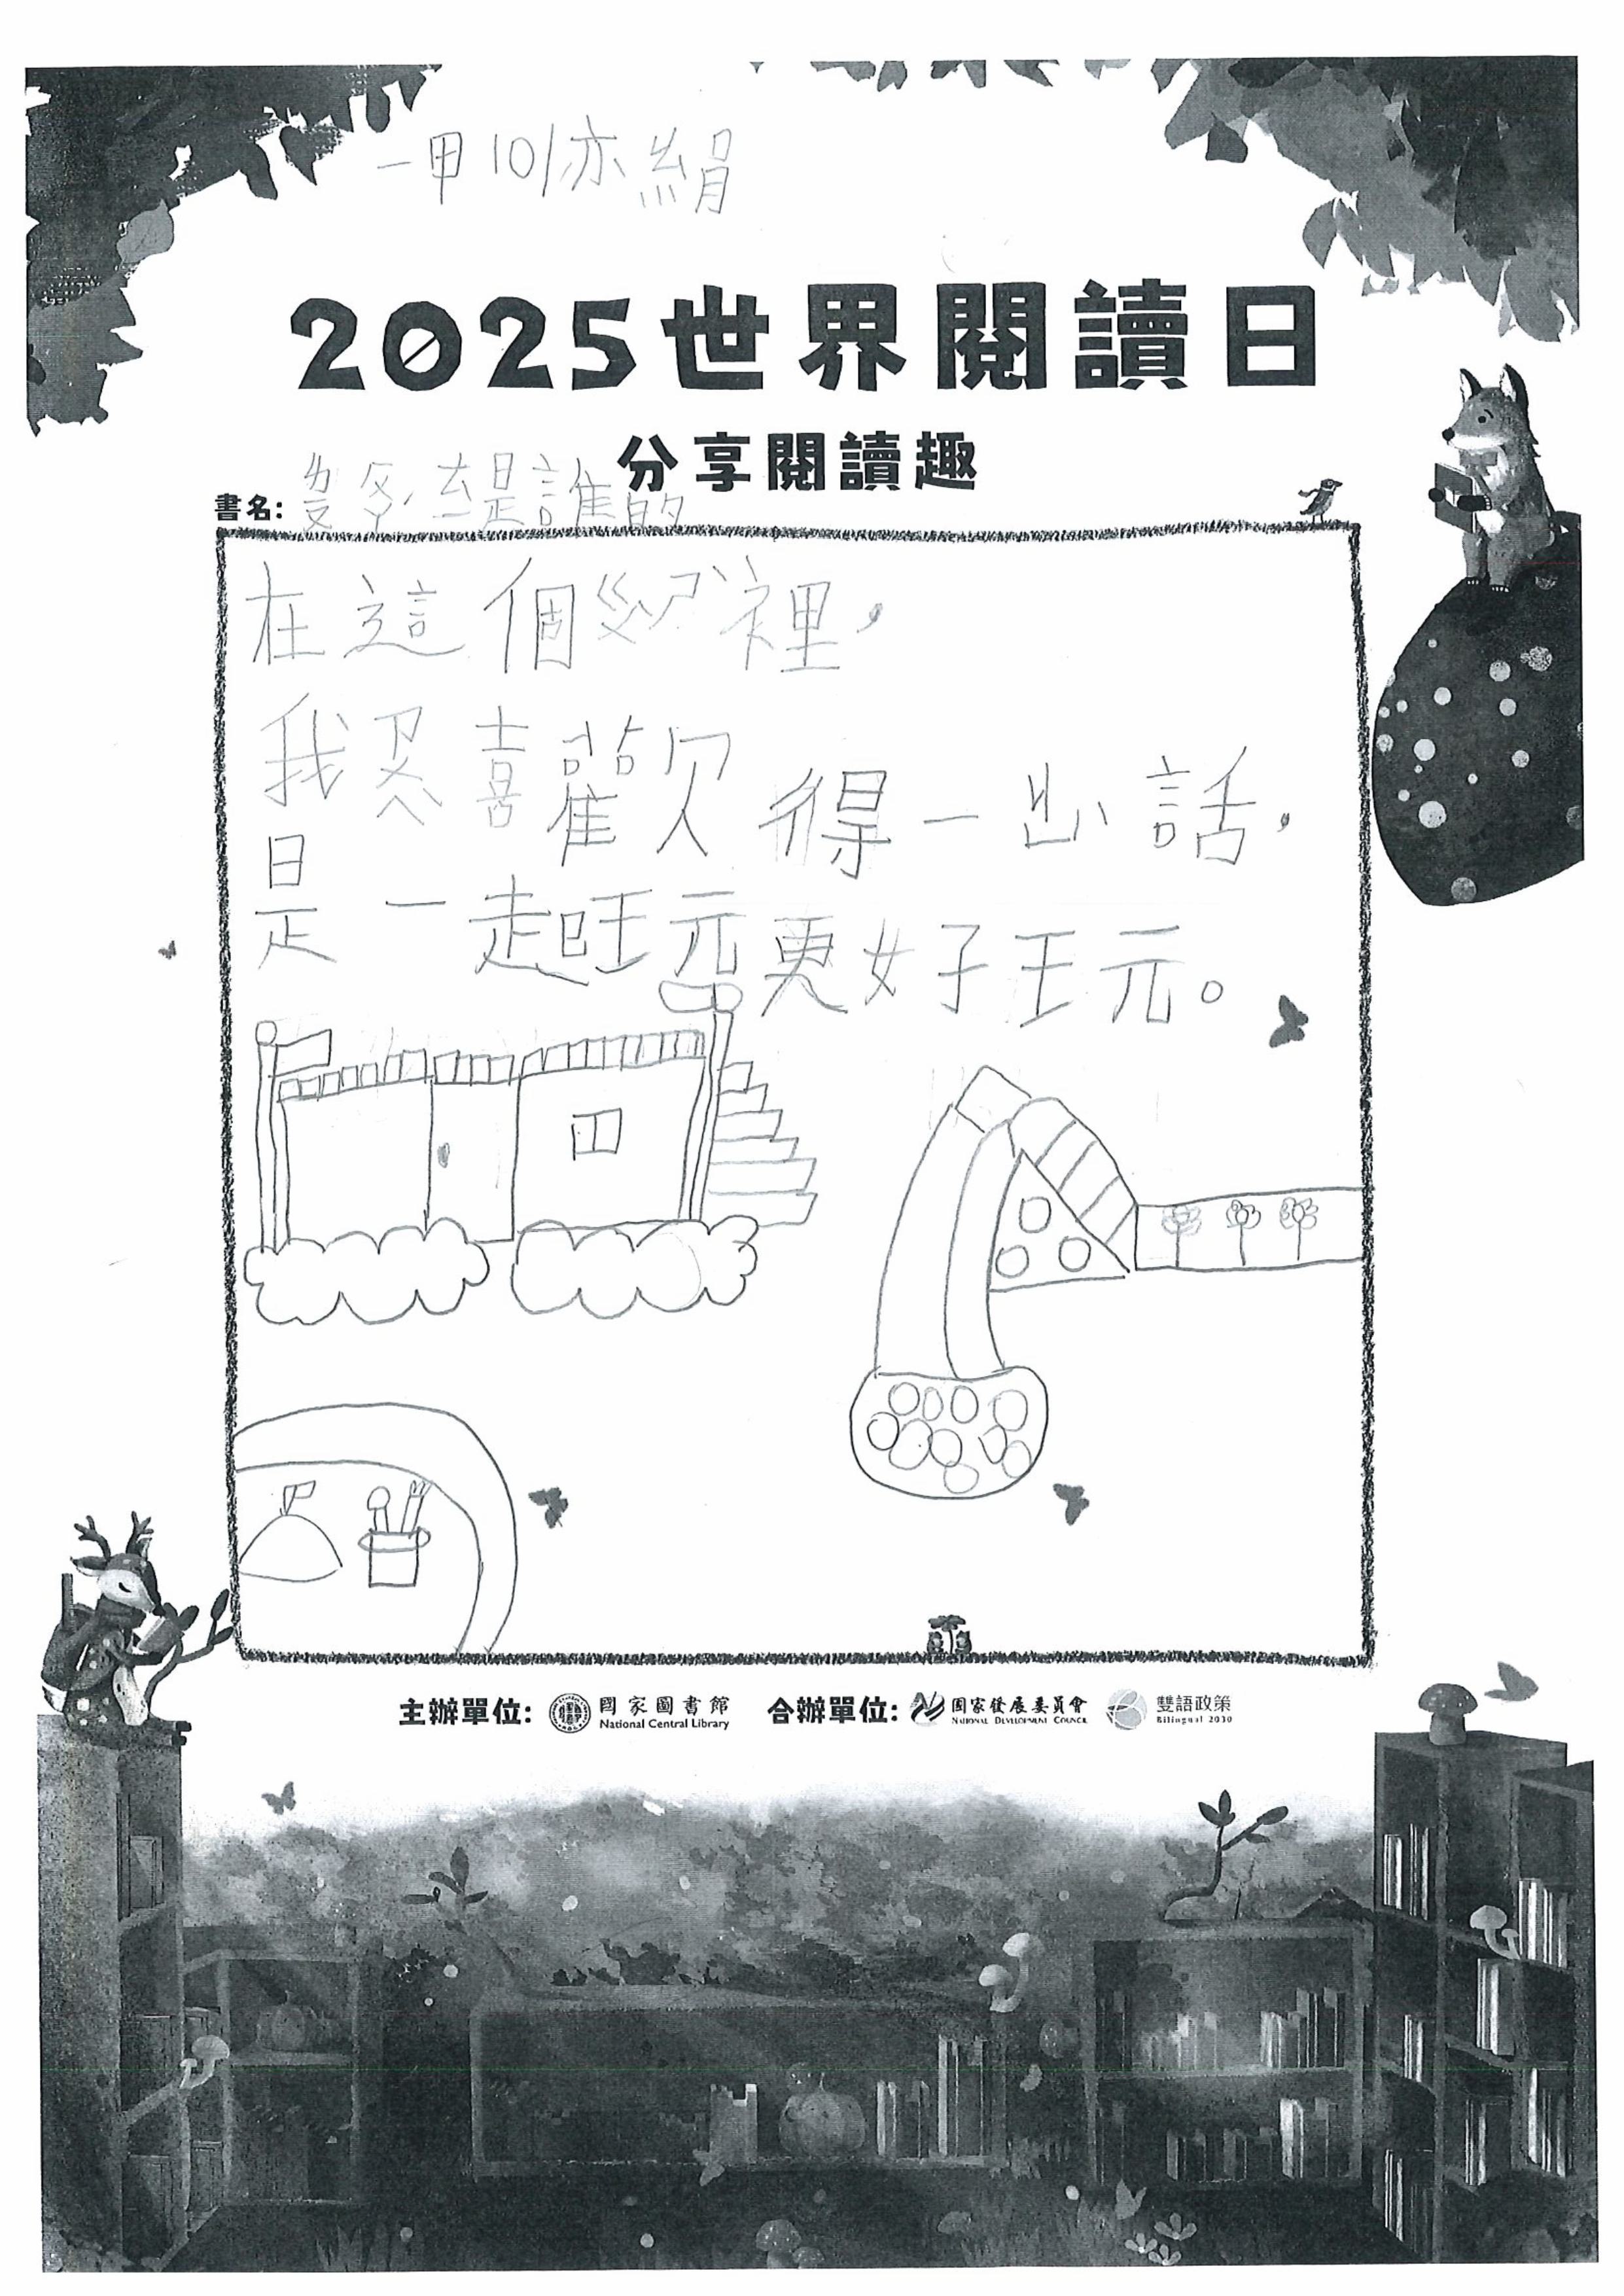 一甲 10/亦絹
2025世界閱讀日
分享閱讀趣
書名: 是誰的
在這個 裡，
我 喜歡得一 話，
是一起旺元更好王元。
主辦單位: 國家圖書館 National Central Library 合辦單位: 國家發展委員會 National Development Council 雙語政策 Bilingual 2030